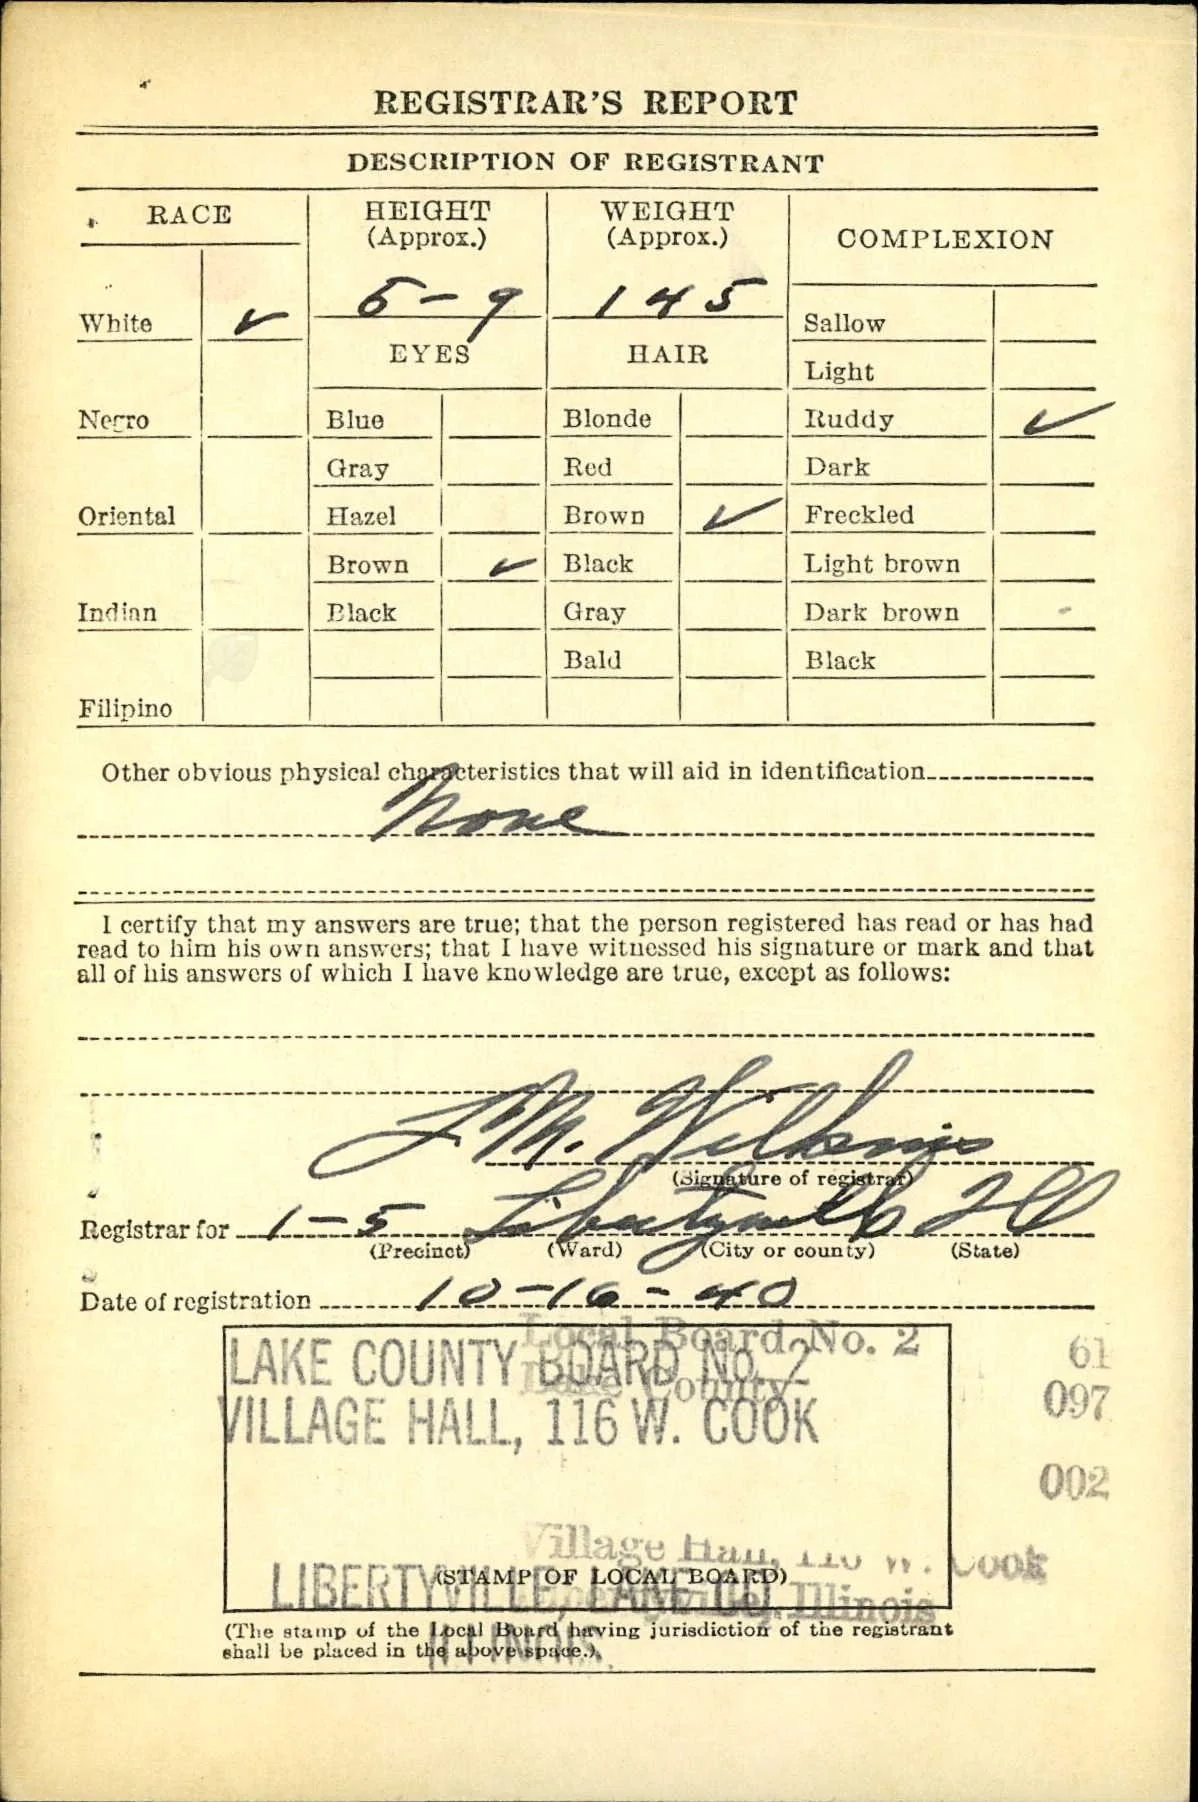 REGISTRAR'S REPORT
DESCRIPTION OF REGISTRANT
RACE
HEIGHT
(Approx.)
WEIGHT
(Approx.)
COMPLEXION
White ✓
5-9
145
Sallow
EYES
HAIR
Light
Negro
Blue
Blonde
Ruddy ✓
Gray
Red
Dark
Oriental
Hazel
Brown ✓
Freckled
Brown ✓
Black
Light brown
Indian
Black
Gray
Dark brown
Bald
Black
Filipino
Other obvious physical characteristics that will aid in identification
None
I certify that my answers are true; that the person registered has read or has had
read to him his own answers; that I have witnessed his signature or mark and that
all of his answers of which I have knowledge are true, except as follows:
M. Wilkins
(Signature of registrar)
Registrar for 1-5 Libertyville Ill
(Precinct) (Ward) (City or county) (State)
Date of registration 10-16-40
Local Board No. 2
61
LAKE COUNTY BOARD No. 2
Lake County
097
VILLAGE HALL, 116 W. COOK
002
Village Hall, 116 W. Cook
(STAMP OF LOCAL BOARD)
LIBERTYVILLE, LAKE CO.
Libertyville, Illinois
(The stamp of the Local Board having jurisdiction of the registrant
shall be placed in the above space.)
ILLINOIS